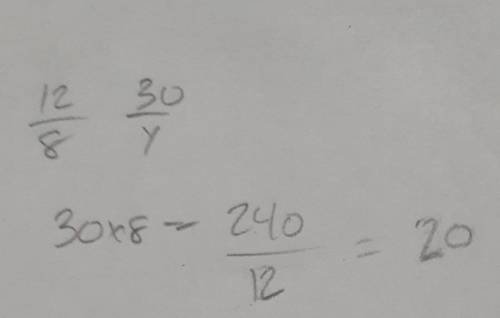 12/8 30/y
30×8 - 240/12 = 20